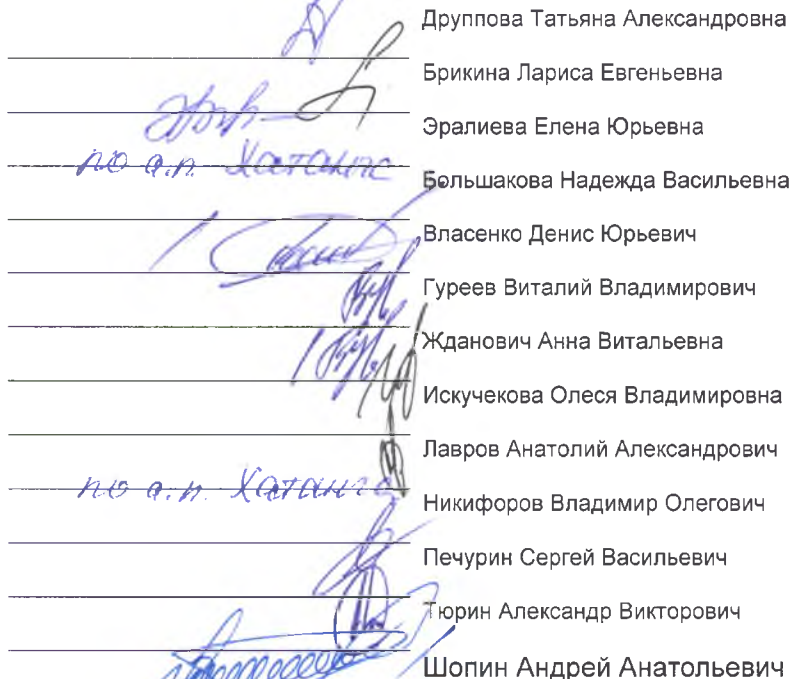 Друппова Татьяна Александровна
Брикина Лариса Евгеньевна
Эралиева Елена Юрьевна
по а.п. Хатанга Большакова Надежда Васильевна
Власенко Денис Юрьевич
Гуреев Виталий Владимирович
Жданович Анна Витальевна
Искучекова Олеся Владимировна
Лавров Анатолий Александрович
по а.п. Хатанга Никифоров Владимир Олегович
Печурин Сергей Васильевич
Тюрин Александр Викторович
Шопин Андрей Анатольевич